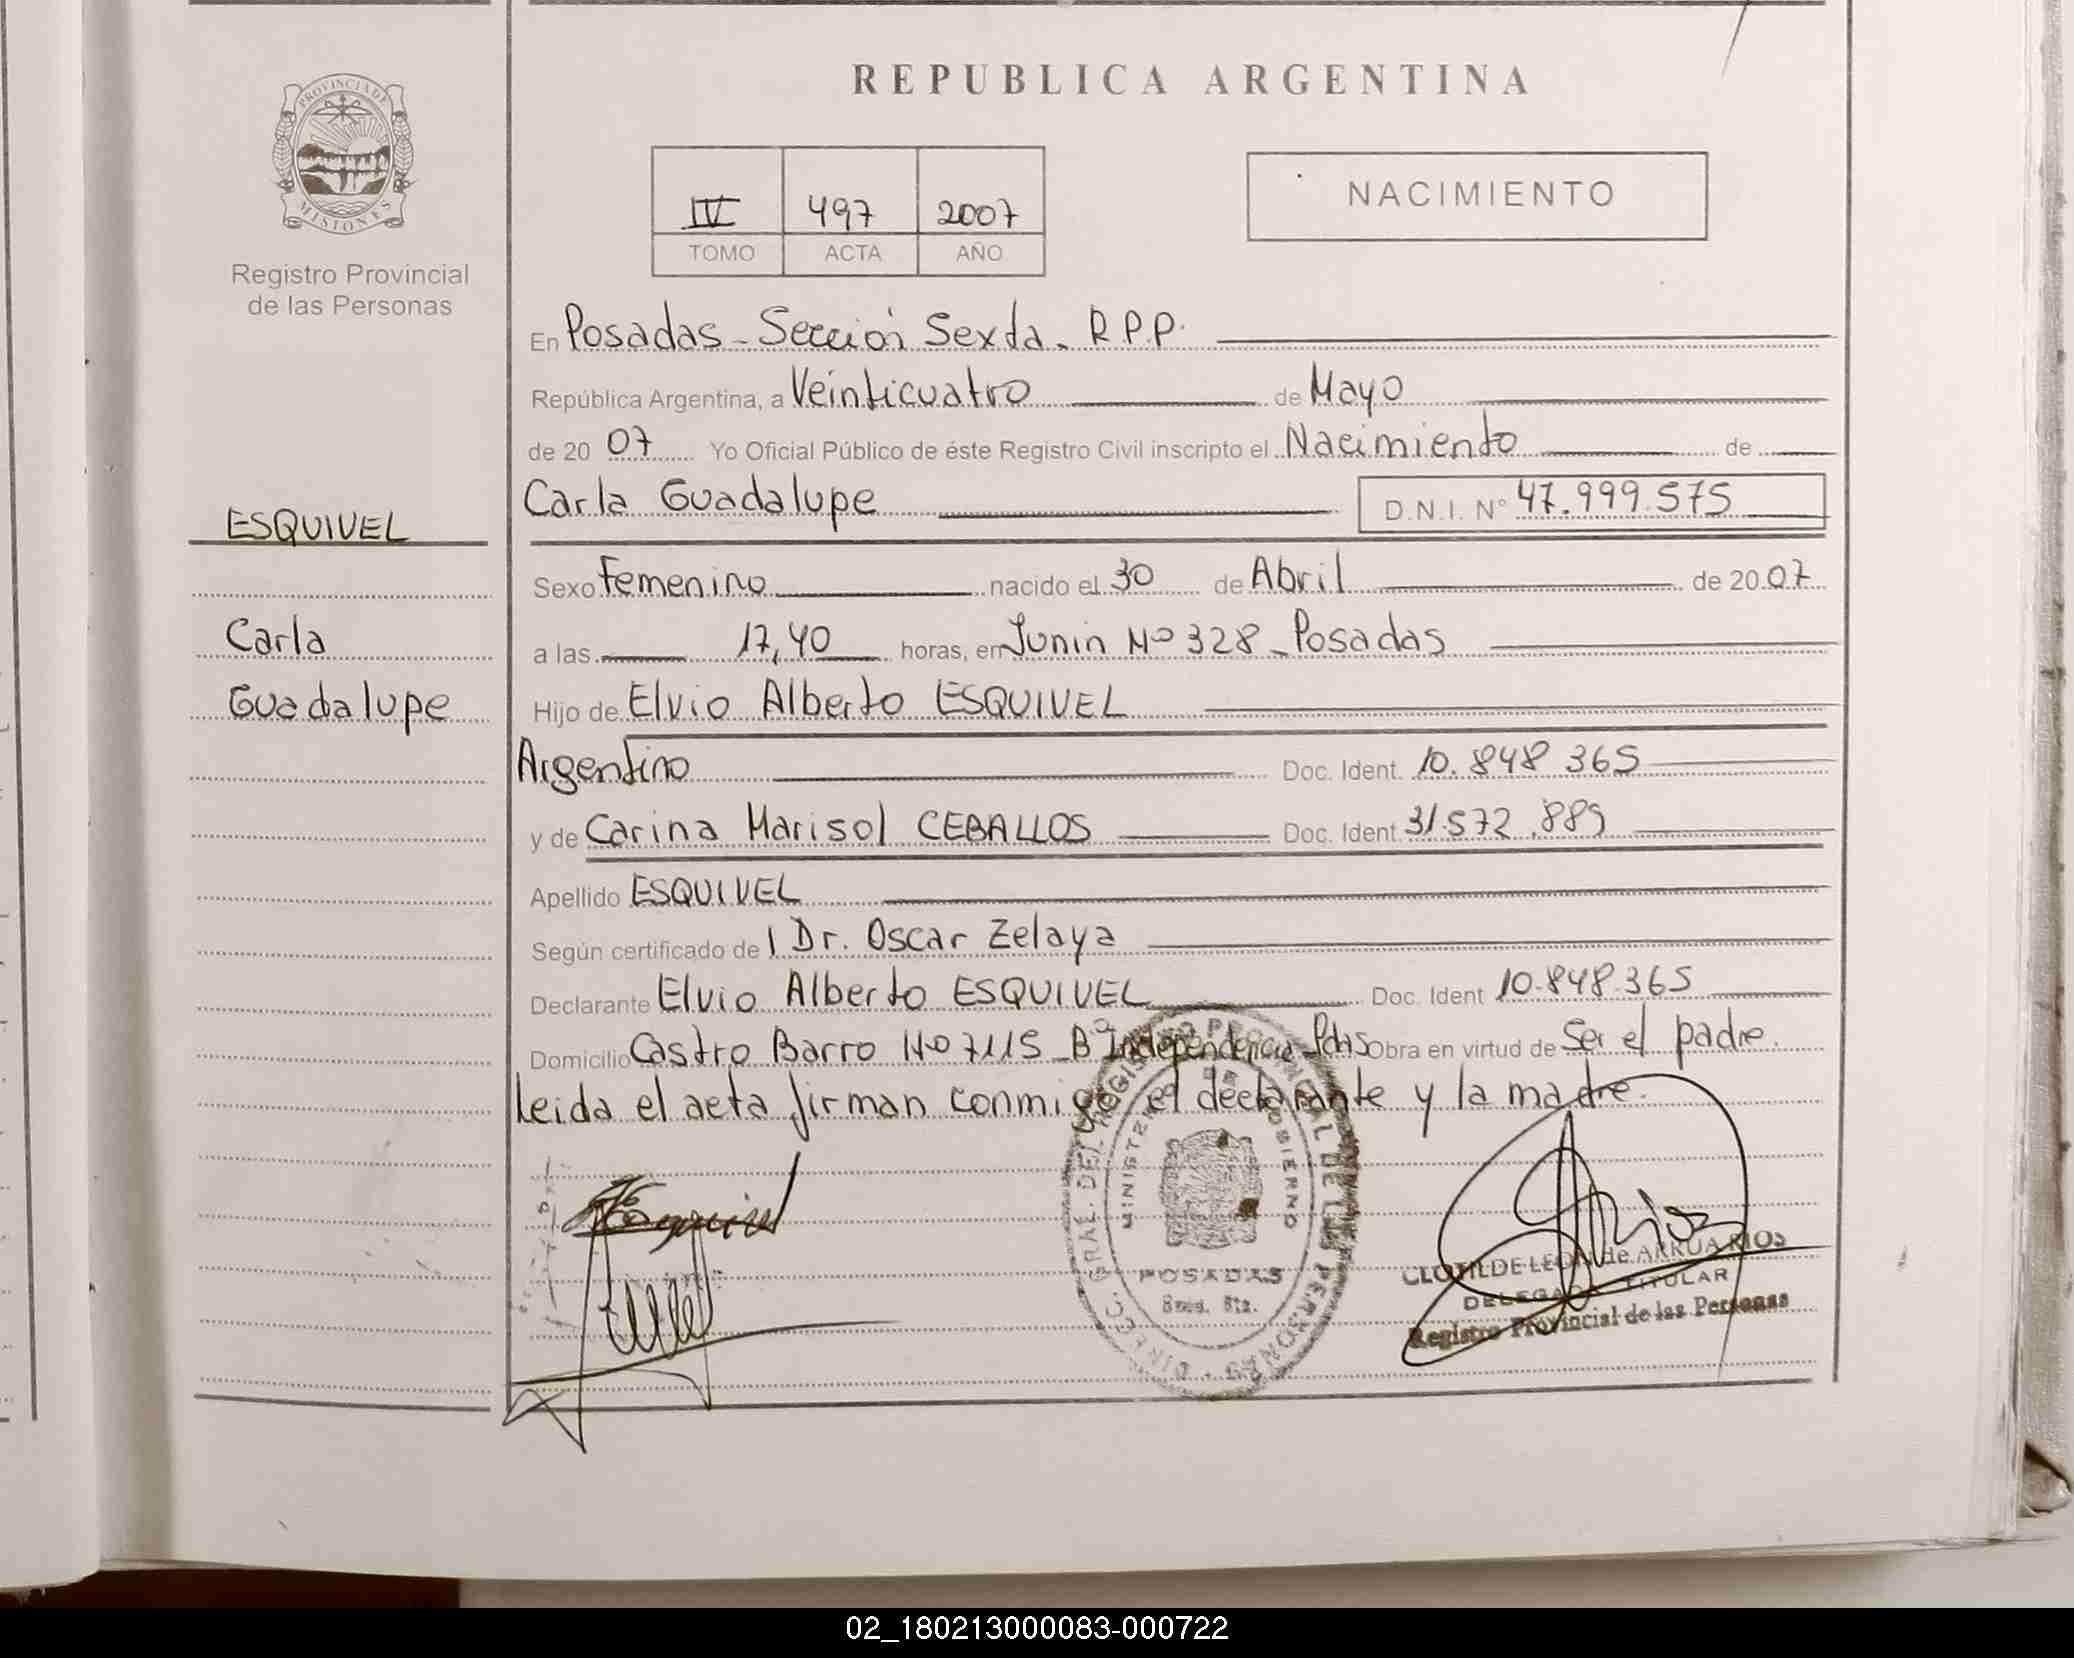 REPUBLICA ARGENTINA
PROVINCIA DE
MISIONES
Registro Provincial
de las Personas
IV 497 2007
TOMO ACTA AÑO
NACIMIENTO
En Posadas - Sección Sexta. R.P.P.
República Argentina, a Veinticuatro de Mayo
de 2007 Yo Oficial Público de éste Registro Civil inscripto el Nacimiento de
Carla Guadalupe D.N.I. N° 47.999.575
ESQUIVEL
Carla
Guadalupe
Sexo Femenino nacido el 30 de Abril de 2007
a las 17,40 horas, en Junin Nº 328 - Posadas
Hijo de Elvio Alberto ESQUIVEL
Argentino Doc. Ident. 10.848.365
y de Carina Marisol CEBALLOS Doc. Ident. 31.572.889
Apellido ESQUIVEL
Según certificado de l Dr. Oscar Zelaya
Declarante Elvio Alberto ESQUIVEL Doc. Ident 10.848.365
Domicilio Castro Barro Nº 7115 - Bº Independencia - Pdas Obra en virtud de Ser el padre.
Leida el acta firman conmigo el declarante y la madre.
DIRECC. GRAL. DEL REGISTRO PROVINCIAL DE LAS PERSONAS
MINISTERIO DE GOBIERNO
POSADAS
CLOTILDE LEON de ARRUA RIOS
DELEGADA TITULAR
Registro Provincial de las Personas
02_180213000083-000722